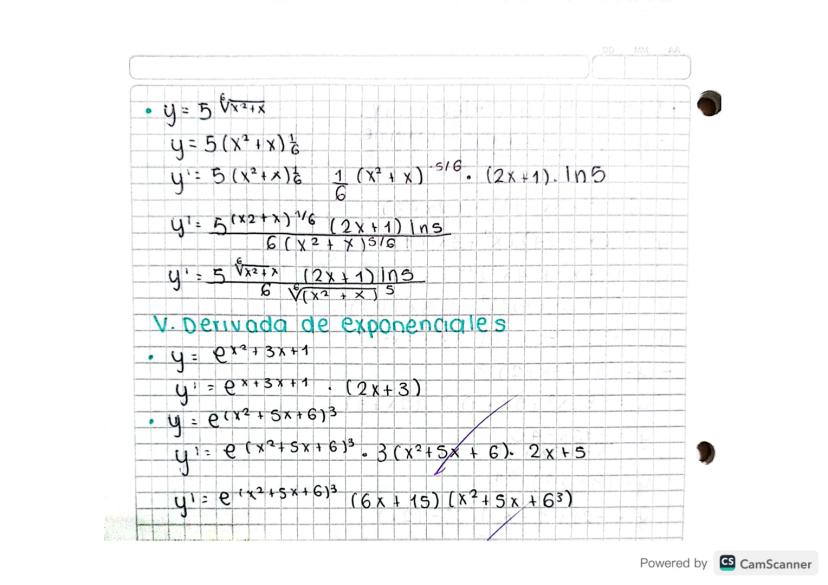 DD MM AA
• y = 5 ⁶√x²+x
y = 5(x² + x) 1/6
y' = 5(x²+x) 1/6 1/6 (x² + x) -5/6 · (2x+1) · ln5
y' = 5 (x2+x) 1/6 (2x+1) ln5 / 6 (x² + x) 5/6
y' = 5 ⁶√x²+x (2x+1) ln5 / 6 ⁶√(x² + x) 5
V. Derivada de exponenciales
• y = e^x² + 3x+1
y' = e^x+3x+1 · (2x+3)
• y = e^(x² + 5x+6)³
y' = e^(x²+5x+6)³ · 3(x²+5x + 6) · 2x+5
y' = e^(x²+5x+6)³ (6x + 15) (x²+5x+6³)
Powered by CS CamScanner